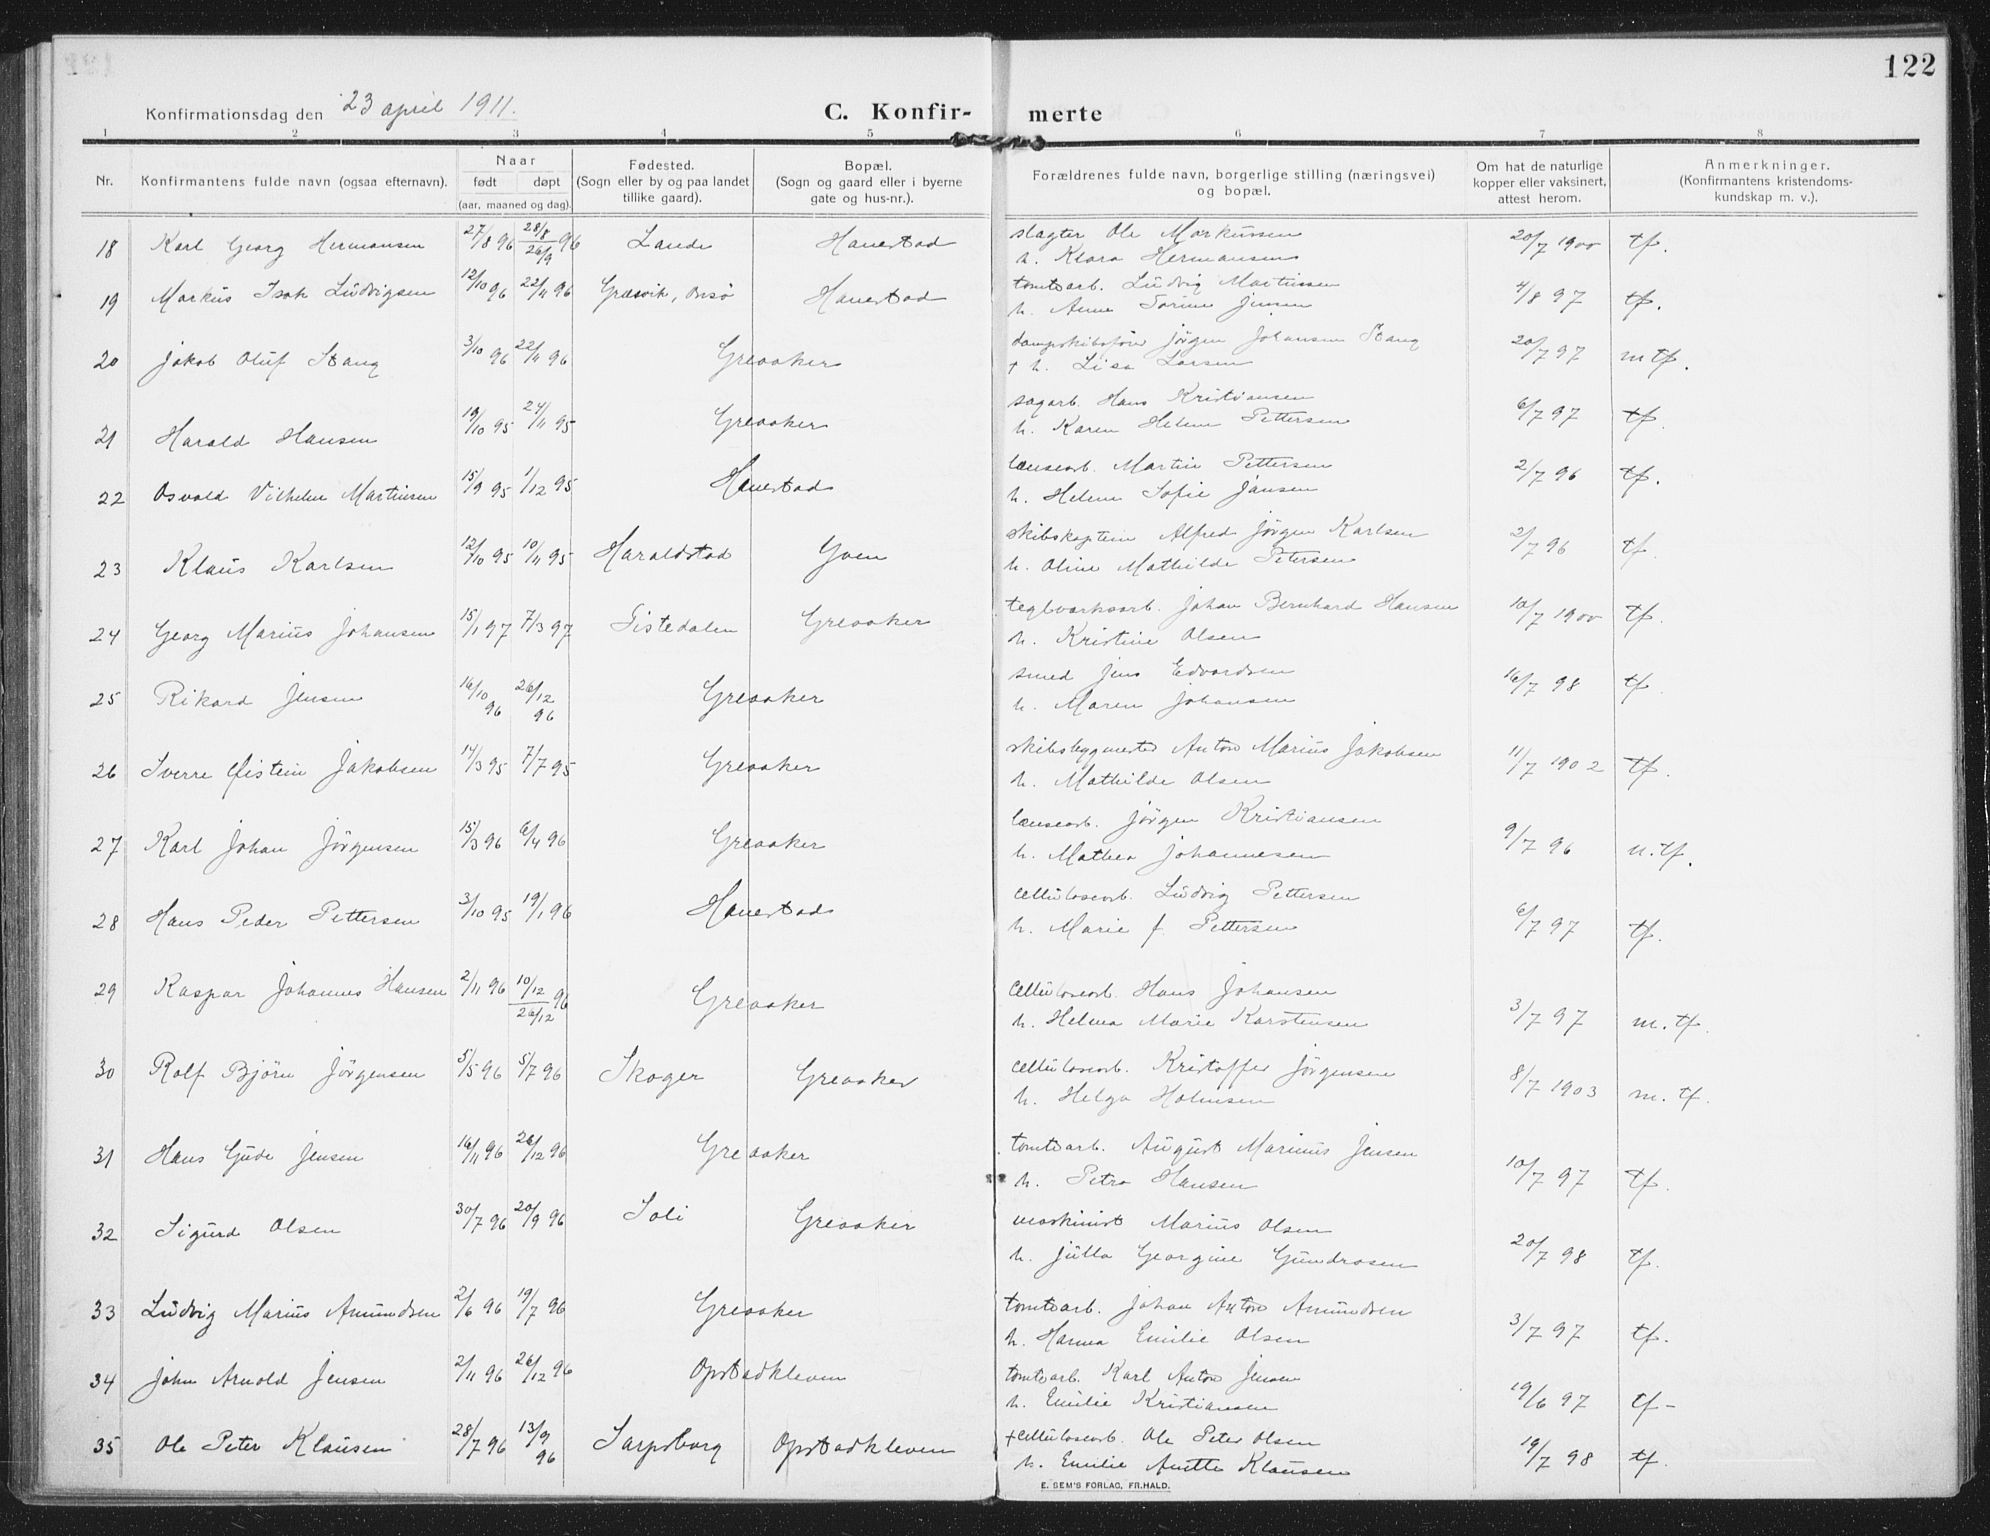 122
Konfirmationsdag den 23 april 1911.
C. Konfir- merte
1 2 3 4 5 6 7 8
Nr. Konfirmantens fulde navn (ogsaa efternavn). Naar født døpt (aar, maaned og dag). Fødested. (Sogn eller by og paa landet tillike gaard). Bopæl. (Sogn og gaard eller i byerne gate og hus-nr.). Forældrenes fulde navn, borgerlige stilling (næringsvei) og bopæl. Om hat de naturlige kopper eller vaksinert, attest herom. Anmerkninger. (Konfirmantens kristendoms- kundskap m. v.).
18 Karl Georg Hermansen 27/8 96 28/8 26/9 96 Lande Hanestad slagter Ole Markussen 20/7 1900 tf.
h. Klara Hermansen
19 Markus Isak Ludvigsen 12/10 96 22/11 96 Græsvik, Onsø Hanestad tomtearb. Ludvig Martinsen 4/8 97 tf.
h. Anne Torine Jensen
20 Jakob Oluf Stang 3/10 96 22/11 96 Greaaker dampskibsfører Jørgen Johansen Stang 20/7 97 mtf.
+ h. Lisa Larsen
21 Harald Hansen 19/10 95 24/11 95 Greaaker sagarb. Hans Kristiansen 6/7 97 tf.
h. Karen Helene Pettersen
22 Osvald Vilhelm Martinsen 15/9 95 1/12 95 Hanestad lænsearb. Martin Pettersen 2/7 96 tf.
h. Helene Sofie Jansen
23 Klaus Karlsen 12/10 95 10/11 95 Haraldstad Yven skibskaptein Alfred Jørgen Karlsen 2/7 96 tf.
h. Oline Mathilde Petersen
24 Georg Marius Johansen 15/1 97 7/3 97 Tistedalen Greaaker teglværksarb. Johan Bernhard Hansen 10/7 1900 tf.
h. Kristine Olsen
25 Rikard Jensen 16/10 96 26/12 96 Greaaker smed Jens Edvardsen 16/7 98 tf.
h. Maren Johansen
26 Sverre Øistein Jakobsen 14/3 95 7/7 95 Greaaker skibsbygmester Anton Marius Jakobsen 11/7 1902 tf.
h. Mathilde Olsen
27 Karl Johan Jørgensen 15/3 96 6/4 96 Greaaker lænsearb. Jørgen Kristiansen 9/7 96 m.tf.
h. Mathea Johannesen
28 Hans Peder Pettersen 3/10 95 19/1 96 Hanestad cellulosearb. Ludvig Pettersen 6/7 97 tf.
h. Marie f. Pettersen
29 Kaspar Johannes Hansen 2/11 96 10/12 26/12 96 Greaaker cellulosearb. Hans Johansen 3/7 97 m. tf.
h. Helma Marie Karstensen
30 Rolf Bjørn Jørgensen 5/5 96 5/7 96 Skoger Greaaker cellulosearb. Kristoffer Jørgensen 8/7 1903 m. tf.
h. Helga Halmsen
31 Hans Gude Jensen 16/11 96 26/12 96 Greaaker tomtearb. August Marinius Jensen 10/7 97 tf.
h. Petra Hansen
32 Sigurd Olsen 30/7 96 20/9 96 Soli Greaaker maskinist Marius Olsen 20/7 98 tf.
h. Julla Georgine Gundrosen
33 Ludvig Marius Amundsen 2/6 96 19/7 96 Greaaker tomtearb. Johan Anton Amundsen 3/7 97 tf.
h. Hanna Emilie Olsen
34 John Arnold Jensen 2/11 96 26/12 96 Opstadkleven tomtearb. Karl Anton Jensen 19/6 97 tf-
h. Emilie Kristiansen
35 Ole Peter Klausen 28/7 96 13/9 96 Sarpsborg Opstadkleven +cellulosearb. Ole Peter Olsen 19/7 98 tf.
h. Emilie Anette Klausen
E. SEM'S FORLAG, FR.HALD.